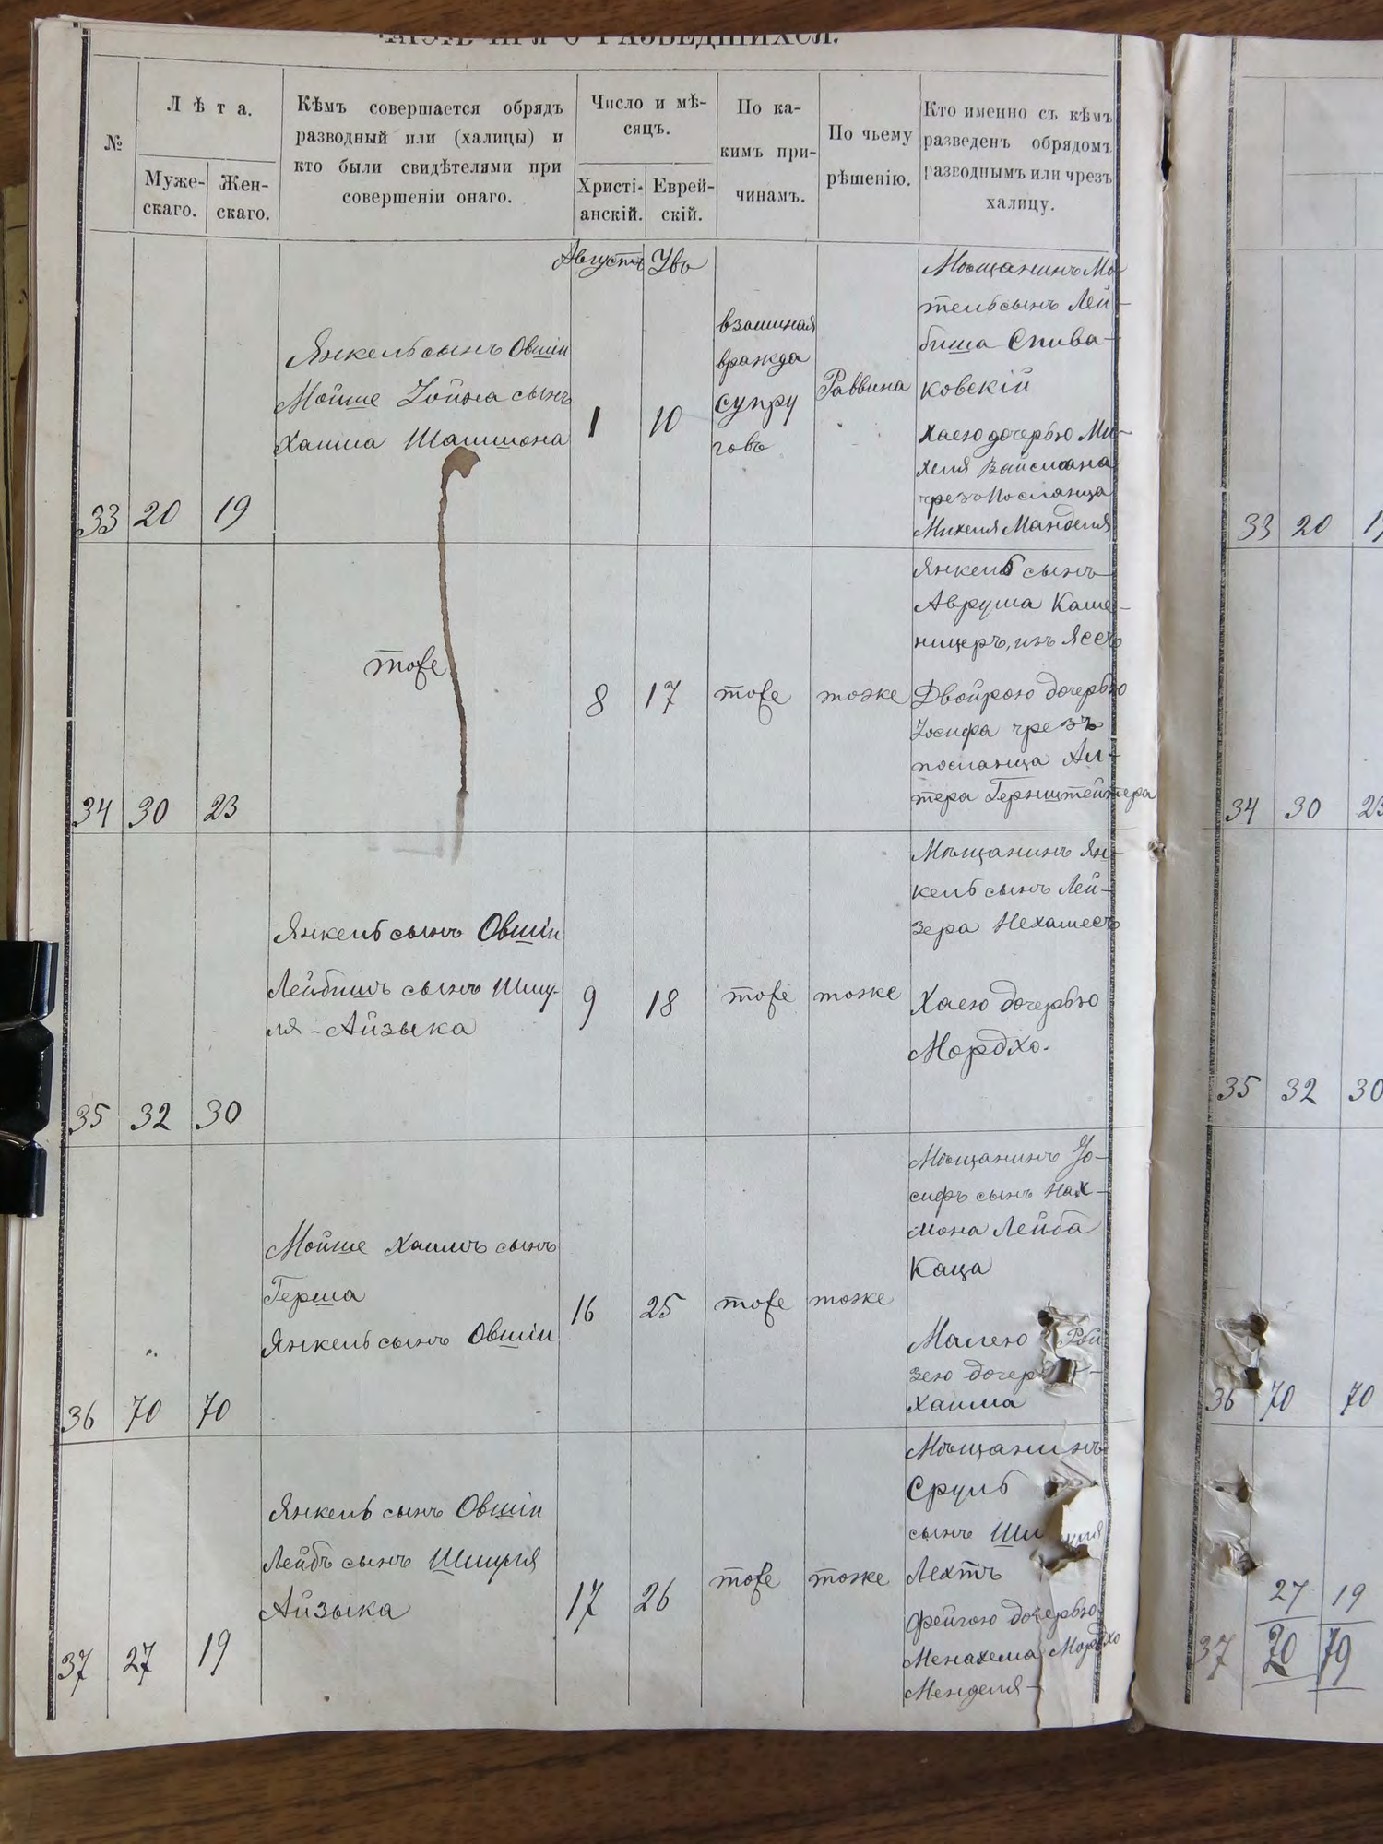 ЧАСТЬ III-я О РАЗВЕДШИХСЯ.
№
Лѣта.
Муже-
скаго.
Жен-
скаго.
Кѣмъ совершается обрядъ
разводный или (халицы) и
кто были свидѣтелями при
совершеніи онаго.
Число и мѣ-
сяцъ.
Христі-
анскій.
Еврей-
скій.
По ка-
кимъ при-
чинамъ.
По чьему
рѣшенію.
Кто именно съ кѣмъ
разведенъ обрядомъ
разводнымъ или чрезъ
халицу.
33
20
19
Янкель сынъ Овшіи
Мойше Іойна сынъ
Хаима Шашмона
Августъ
1
10
взаимная
вражда
супру
говъ
Раввина
Мѣщанинъ Мо
тель сынъ Лей-
биша Спива-
ковскій
Хаею дочерью Ми-
хеля Вайсмана
чрез Посланца
Михеля Манделя
34
30
23
тоже
8
17
тоже
тоже
Янкель сынъ
Аврума Каме-
ницеръ, изъ Яссъ
Двойрою дочерью
Іосифа чрезъ
посланца Ал-
тера Гернштейнера
35
32
30
Янкель сынъ Овшіи
Лейбишъ сынъ Шму-
ля-Айзыка
9
18
тоже
тоже
Мѣщанинъ Ян-
кель сынъ Лей-
зера Нехамесъ
Хаею дочерью
Мордхо.
36
70
70
Мойше Хаимъ сынъ
Герша
Янкель сынъ Овшіи
16
25
тоже
тоже
Мѣщанинъ Іо-
сифъ сынъ Нах-
мона Лейба
Каца
Малею Рей
зею дочер
Хаима
37
27
19
Янкель сынъ Овшіи
Лейбъ сынъ Шмуля
Айзыка
17
26
тоже
тоже
Мѣщанинъ
Сруль
сынъ
Лехтъ
Фейгою дочерью
Менахема Мордхо
Менделя-
33
20
34
30
23
35
32
30
36
70
70
27
19
37
70
79